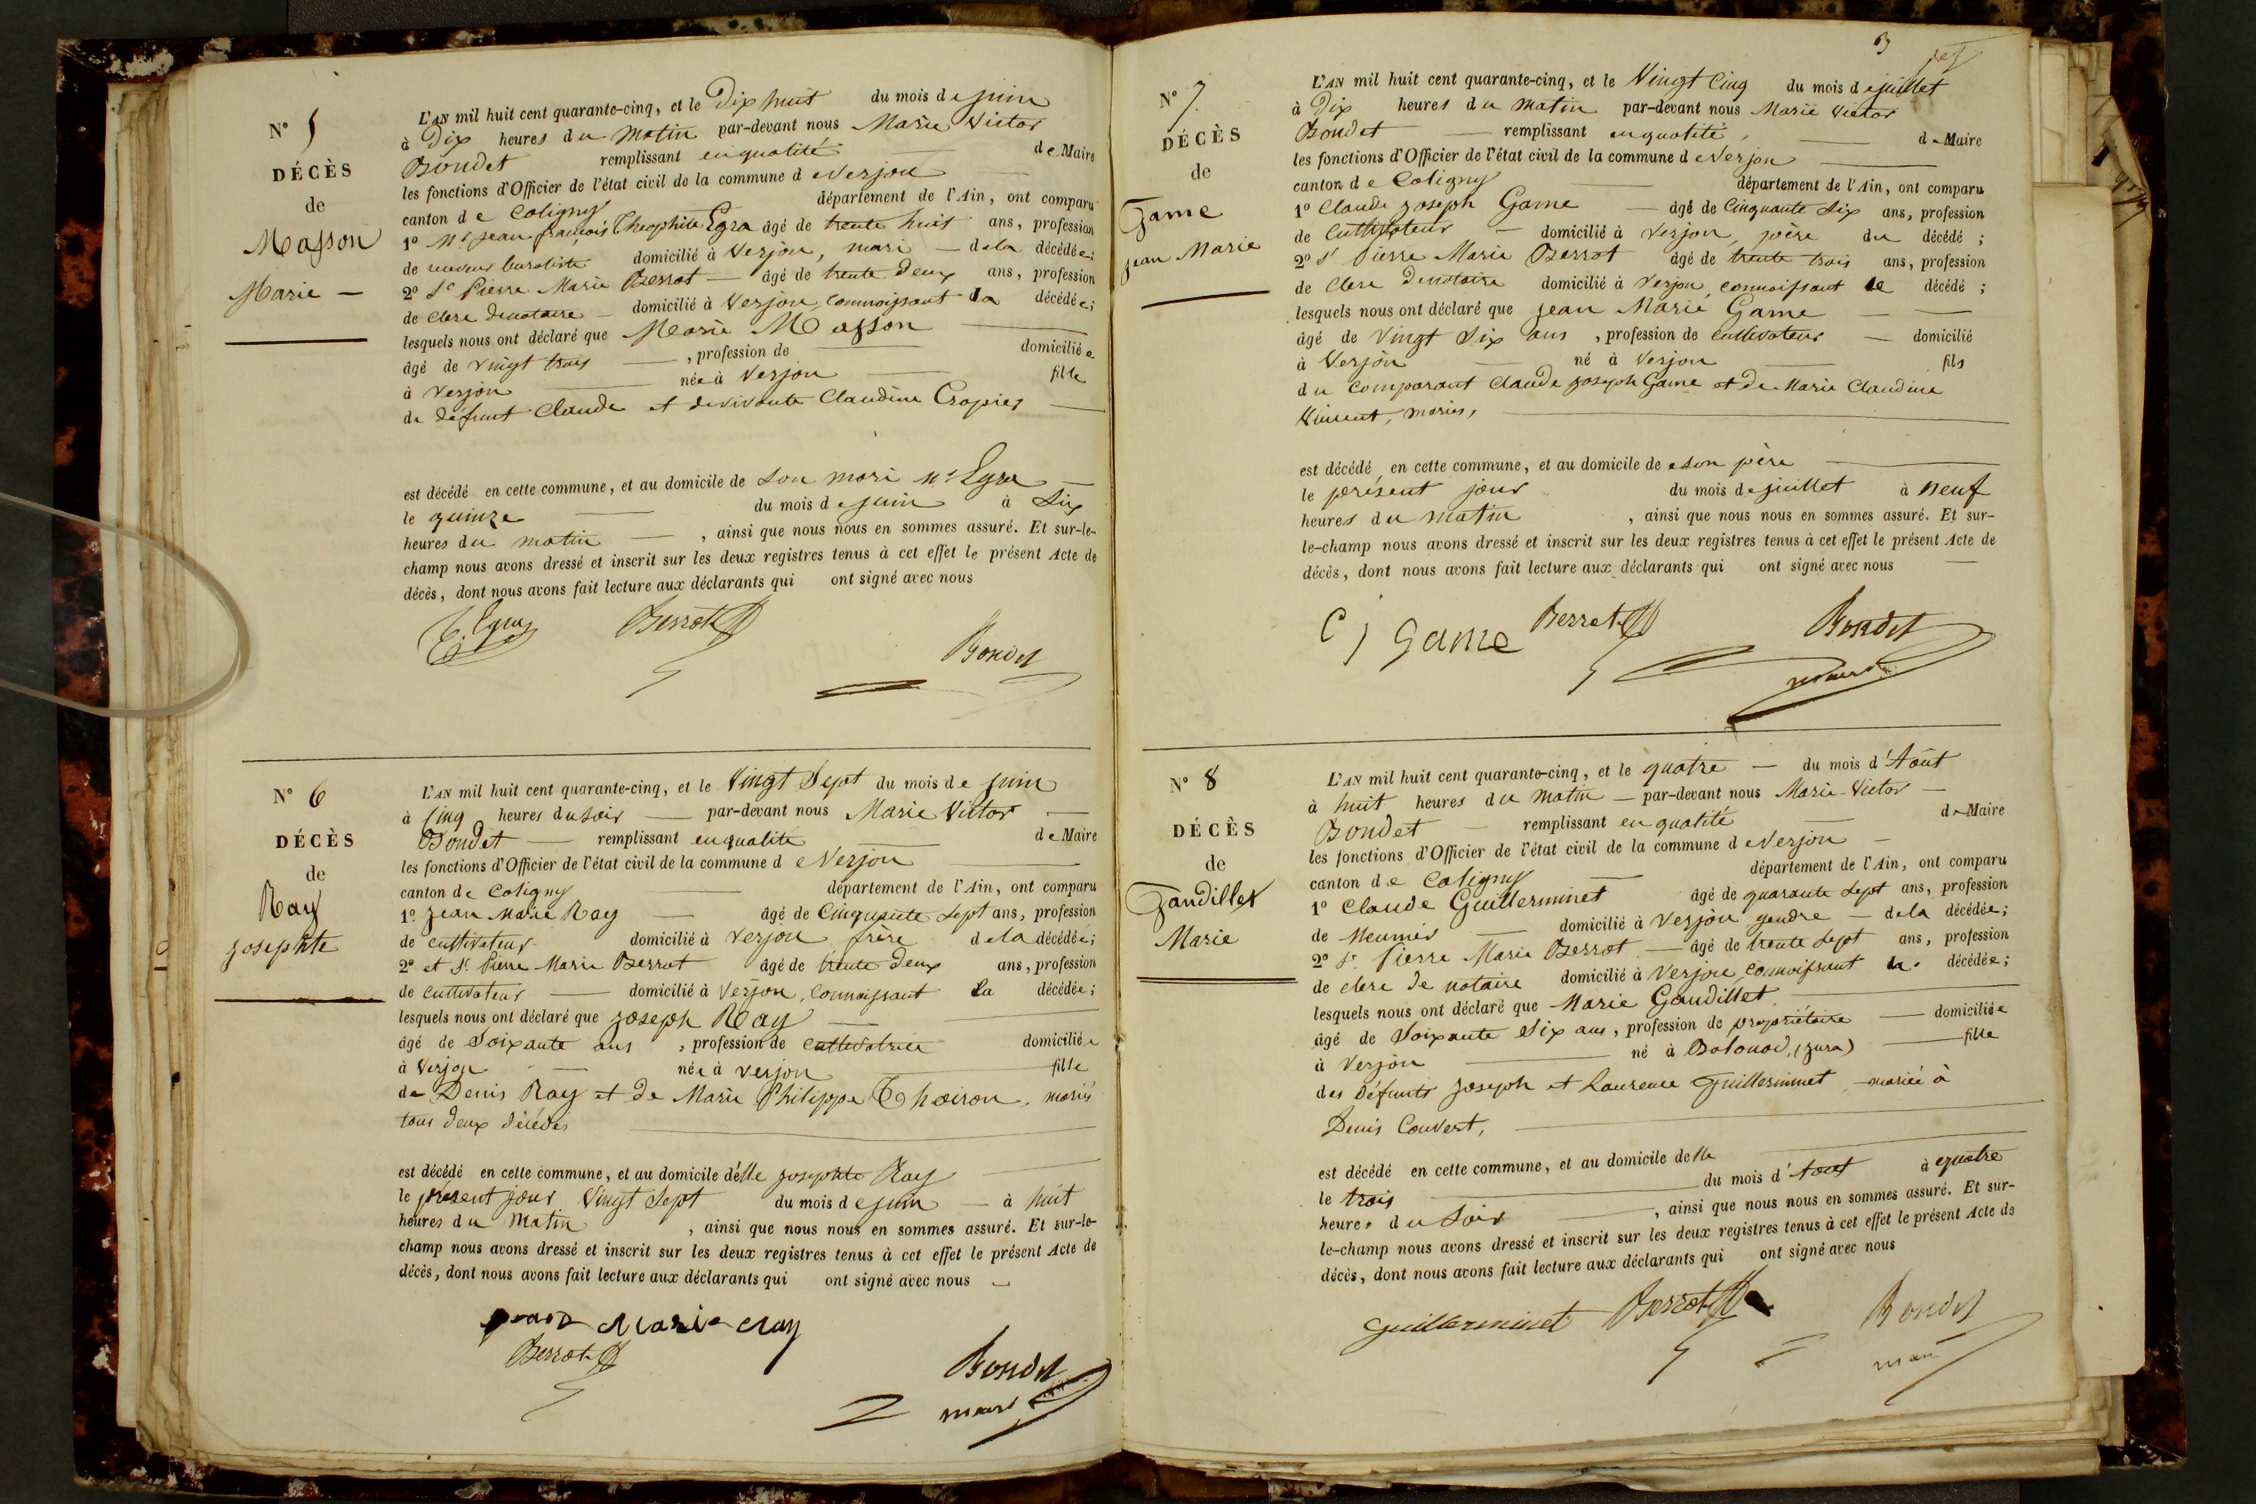 N° 5
DÉCÈS
de
Masson
Marie —
L'AN mil huit cent quarante-cinq, et le Dix huit du mois de juin
à Dix heures du matin par-devant nous Marie Victor
Bondet remplissant en qualité de Maire
les fonctions d'Officier de l'état civil de la commune de Verjon
canton de Coligny département de l'Ain, ont comparu
1° Mr jean françois Théophile Egra âgé de trente huit ans, profession
de buraliste domicilié à Verjon, mari — de la décédée;
2° Sr Pierre Marie Berrot — âgé de trente deux ans, profession
de clerc de notaire — domicilié à Verjon, connoissant la décédée;
lesquels nous ont déclaré que Marie Masson
âgé de vingt trois , profession de domiciliée
à Verjon née à Verjon fille
de défunt Claude et de vivante Claudine
est décédé en cette commune, et au domicile de son mari Mr Egra
le quinze du mois de juin à Six
heures du matin — , ainsi que nous nous en sommes assuré. Et sur-le-
champ nous avons dressé et inscrit sur les deux registres tenus à cet effet le présent Acte de
décès, dont nous avons fait lecture aux déclarants qui ont signé avec nous
Berrot
Bondet
N° 6
DÉCÈS
de
Ray
josephte
L'AN mil huit cent quarante-cinq, et le Vingt Sept du mois de juin
à Cinq heures du soir — par-devant nous Marie Victor —
Bondet — remplissant en qualité de Maire
les fonctions d'Officier de l'état civil de la commune de Verjon
canton de Coligny département de l'Ain, ont comparu
1° jean Marie Ray — âgé de Cinquante Sept ans, profession
de cultivateur domicilié à Verjon frère de la décédée;
2° et Sr Pierre Marie Berrot âgé de trente deux ans, profession
de cultivateur — domicilié à Verjon, connoissant la décédée;
lesquels nous ont déclaré que joseph Ray
âgé de Soixante ans , profession de cultivatrice domiciliée
à Verjon — née à Verjon fille
de Denis Ray et de Marie Philippe Thoiron, mariés
tous deux décédés
est décédé en cette commune, et au domicile d'elle josephte Ray
le présent jour Vingt Sept du mois de juin — à huit
heures du matin , ainsi que nous nous en sommes assuré. Et sur-le-
champ nous avons dressé et inscrit sur les deux registres tenus à cet effet le présent Acte de
décès, dont nous avons fait lecture aux déclarants qui ont signé avec nous —
Marie Ray
Berrot
Bondet
maire
N° 7
DÉCÈS
de
Game
jean Marie
L'AN mil huit cent quarante-cinq, et le Vingt Cinq du mois de juillet
à Dix heures du matin par-devant nous Marie Victor
Bondet — remplissant en qualité, — de Maire
les fonctions d'Officier de l'état civil de la commune de Verjon
canton de Coligny département de l'Ain, ont comparu
1° Claude joseph Game — âgé de Cinquante Six ans, profession
de Cultivateur — domicilié à Verjon, père du décédé;
2° Sr Pierre Marie Berrot âgé de trente trois ans, profession
de clerc de notaire domicilié à Verjon, connoissant le décédé;
lesquels nous ont déclaré que jean Marie Game — —
âgé de Vingt Six ans , profession de cultivateur — domicilié
à Verjon — né à Verjon fils
du comparant Claude joseph Game et de Marie Claudine
Vincent, mariés,
est décédé en cette commune, et au domicile de son père
le présent jour du mois de juillet à neuf
heures du matin , ainsi que nous nous en sommes assuré. Et sur-
le-champ nous avons dressé et inscrit sur les deux registres tenus à cet effet le présent Acte de
décès, dont nous avons fait lecture aux déclarants qui ont signé avec nous —
C j Game
Berrot
Bondet
N° 8
DÉCÈS
de
Gandillet
Marie
L'AN mil huit cent quarante-cinq, et le quatre — du mois d'Août
à huit heures du matin — par-devant nous Marie-Victor —
Bondet — remplissant en qualité — de Maire
les fonctions d'Officier de l'état civil de la commune de Verjon —
canton de Coligny — département de l'Ain, ont comparu
1° Claude Guillerminet âgé de quarante Sept ans, profession
de Meunier — domicilié à Verjon gendre — de la décédée;
2° Sr Pierre Marie Berrot — âgé de trente sept ans, profession
de clerc de notaire domicilié à Verjon, connoissant la décédée;
lesquels nous ont déclaré que Marie Gandillet
âgé de Soixante Six ans, profession de propriétaire — domiciliée
à Verjon né à (jura) fille
des défunts joseph et Laurence Guillerminet mariée à
Denis Couvert,
est décédé en cette commune, et au domicile d'elle
le trois du mois d'Août à quatre
heures du Soir , ainsi que nous nous en sommes assuré. Et sur-
le-champ nous avons dressé et inscrit sur les deux registres tenus à cet effet le présent Acte de
décès, dont nous avons fait lecture aux déclarants qui ont signé avec nous
Guillerminet
Berrot
Bondet